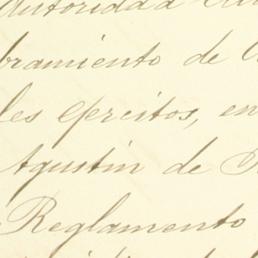 autoridad
bramiento de
les ejercitos, en
Agustin de
Reglamento